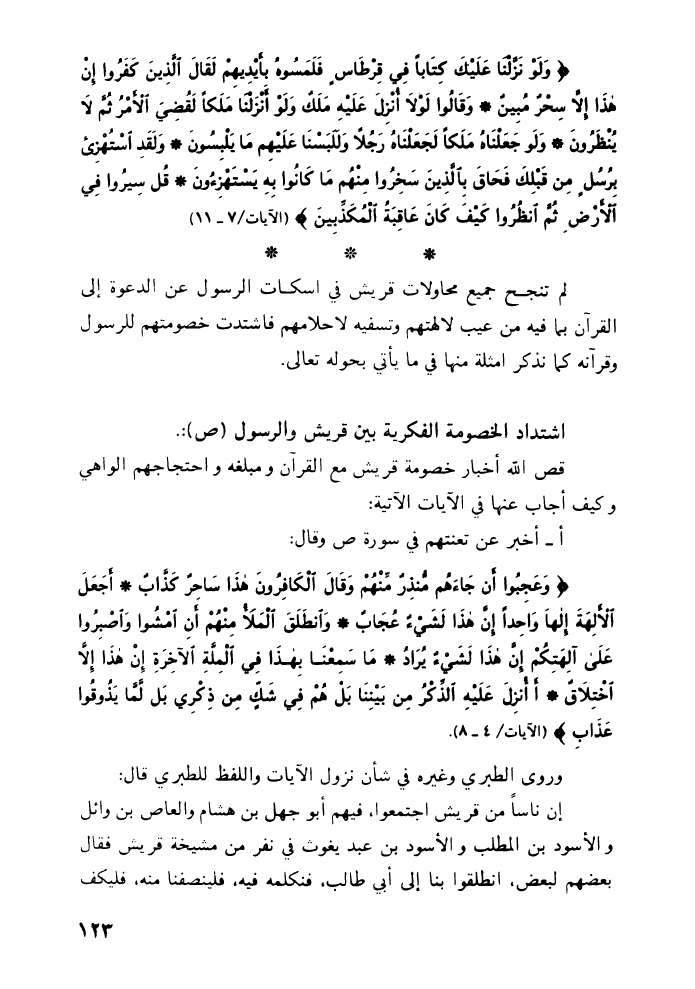 ﴿ وَلَوْ نَزَّلْنَا عَلَيْكَ كِتَاباً فِي قِرْطَاسٍ فَلَمَسُوهُ بِأَيْدِيهِمْ لَقَالَ ٱلَّذِينَ كَفَرُوا إِنْ
هٰذَا إِلَّا سِحْرٌ مُبِينٌ * وَقَالُوا لَوْلَا أُنْزِلَ عَلَيْهِ مَلَكٌ وَلَوْ أَنْزَلْنَا مَلَكاً لَقُضِيَ ٱلْأَمْرُ ثُمَّ لَا
يُنْظَرُونَ * وَلَو جَعَلْنَاهُ مَلَكاً لَجَعَلْنَاهُ رَجُلًا وَلَلَبَسْنَا عَلَيْهِم مَا يَلْبِسُونَ * وَلَقَدِ ٱسْتُهْزِئَ
بِرُسُلٍ مِن قَبْلِكَ فَحَاقَ بِٱلَّذِينَ سَخِرُوا مِنْهُم مَا كَانُوا بِهِ يَسْتَهْزِءُونَ * قُل سِيرُوا فِي
ٱلْأَرْضِ ثُمَّ ٱنظُرُوا كَيْفَ كَانَ عَاقِبَةُ ٱلْمُكَذِّبِينَ ﴾ (الآيات/٧ ـ ١١)
* * *
لم تنجح جميع محاولات قريش في اسكات الرسول عن الدعوة إلى
القرآن بما فيه من عيب لالهتهم وتسفيه لاحلامهم فاشتدت خصومتهم للرسول
وقرآنه كما نذكر امثلة منها في ما يأتي بحوله تعالى.
اشتداد الخصومة الفكرية بين قريش والرسول (ص):.
قص الله أخبار خصومة قريش مع القرآن ومبلغه واحتجاجهم الواهي
وكيف أجاب عنها في الآيات الآتية:
أ ـ أخبر عن تعنتهم في سورة ص وقال:
﴿ وَعَجِبُوا أَن جَاءَهُم مُّنذِرٌ مِّنْهُمْ وَقَالَ ٱلْكَافِرُونَ هٰذَا سَاحِرٌ كَذَّابٌ * أَجَعَلَ
ٱلْآلِهَةَ إِلٰهاً وَاحِداً إِنَّ هٰذَا لَشَيْءٌ عُجَابٌ * وَٱنطَلَقَ ٱلْمَلَأُ مِنْهُمْ أَنِ ٱمْشُوا وَٱصْبِرُوا
عَلَىٰ آلِهَتِكُمْ إِنَّ هٰذَا لَشَيْءٌ يُرَادُ * مَا سَمِعْنَا بِهٰذَا فِي ٱلْمِلَّةِ الآخِرَةِ إِنْ هٰذَا إِلَّا
ٱخْتِلَاقٌ * أَأُنْزِلَ عَلَيْهِ ٱلذِّكْرُ مِن بَيْنِنَا بَلْ هُمْ فِي شَكٍّ مِن ذِكْرِي بَل لَّمَّا يَذُوقُوا
عَذَابِ ﴾ (الآيات/ ٤ ـ ٨).
وروى الطبري وغيره في شأن نزول الآيات واللفظ للطبري قال:
إن ناساً من قريش اجتمعوا، فيهم أبو جهل بن هشام والعاص بن وائل
والأسود بن المطلب والأسود بن عبد يغوث في نفر من مشيخة قريش فقال
بعضهم لبعض، انطلقوا بنا إلى أبي طالب، فنكلمه فيه، فلينصفنا منه، فليكف
١٢٣